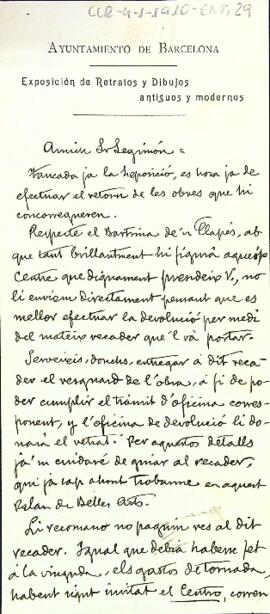 CCR-4-1-1910-ENT, 29
AYUNTAMIENTO DE BARCELONA
Exposición de Retratos y Dibujos
antiguos y modernos
Amich Sr Segimón =
Tancada ja la Exposició, es hora ja de
efectuar el retorn de les obres que hi
concorregueren.
Respecte el Bartrina de'n Llapés, ab
que tant brillantment hi figurá aqueix
Centre que dignament presideix V., no
li enviem directament pensant que es
mellor efectuar la devolució per medi
del mateix recader que'l vá portar.
Serveixis, donchs, entregar á dit reca-
der el resguard de l'obra, á fi de po-
der cumplir el trámit d'oficina corres-
ponent, y l'oficina de devolució li do-
nará el retrat. Per aquestos detalls
ja'm cuidaré de guiar al recader,
qui ja sap ahont trobarme en aquest
Palau de Belles Arts.
Li recomano no paguin res al dit
recader. Igual que debia haberse fet
á la vinguda, els gastos de tornada,
habent sigut invitat el Centro, corren